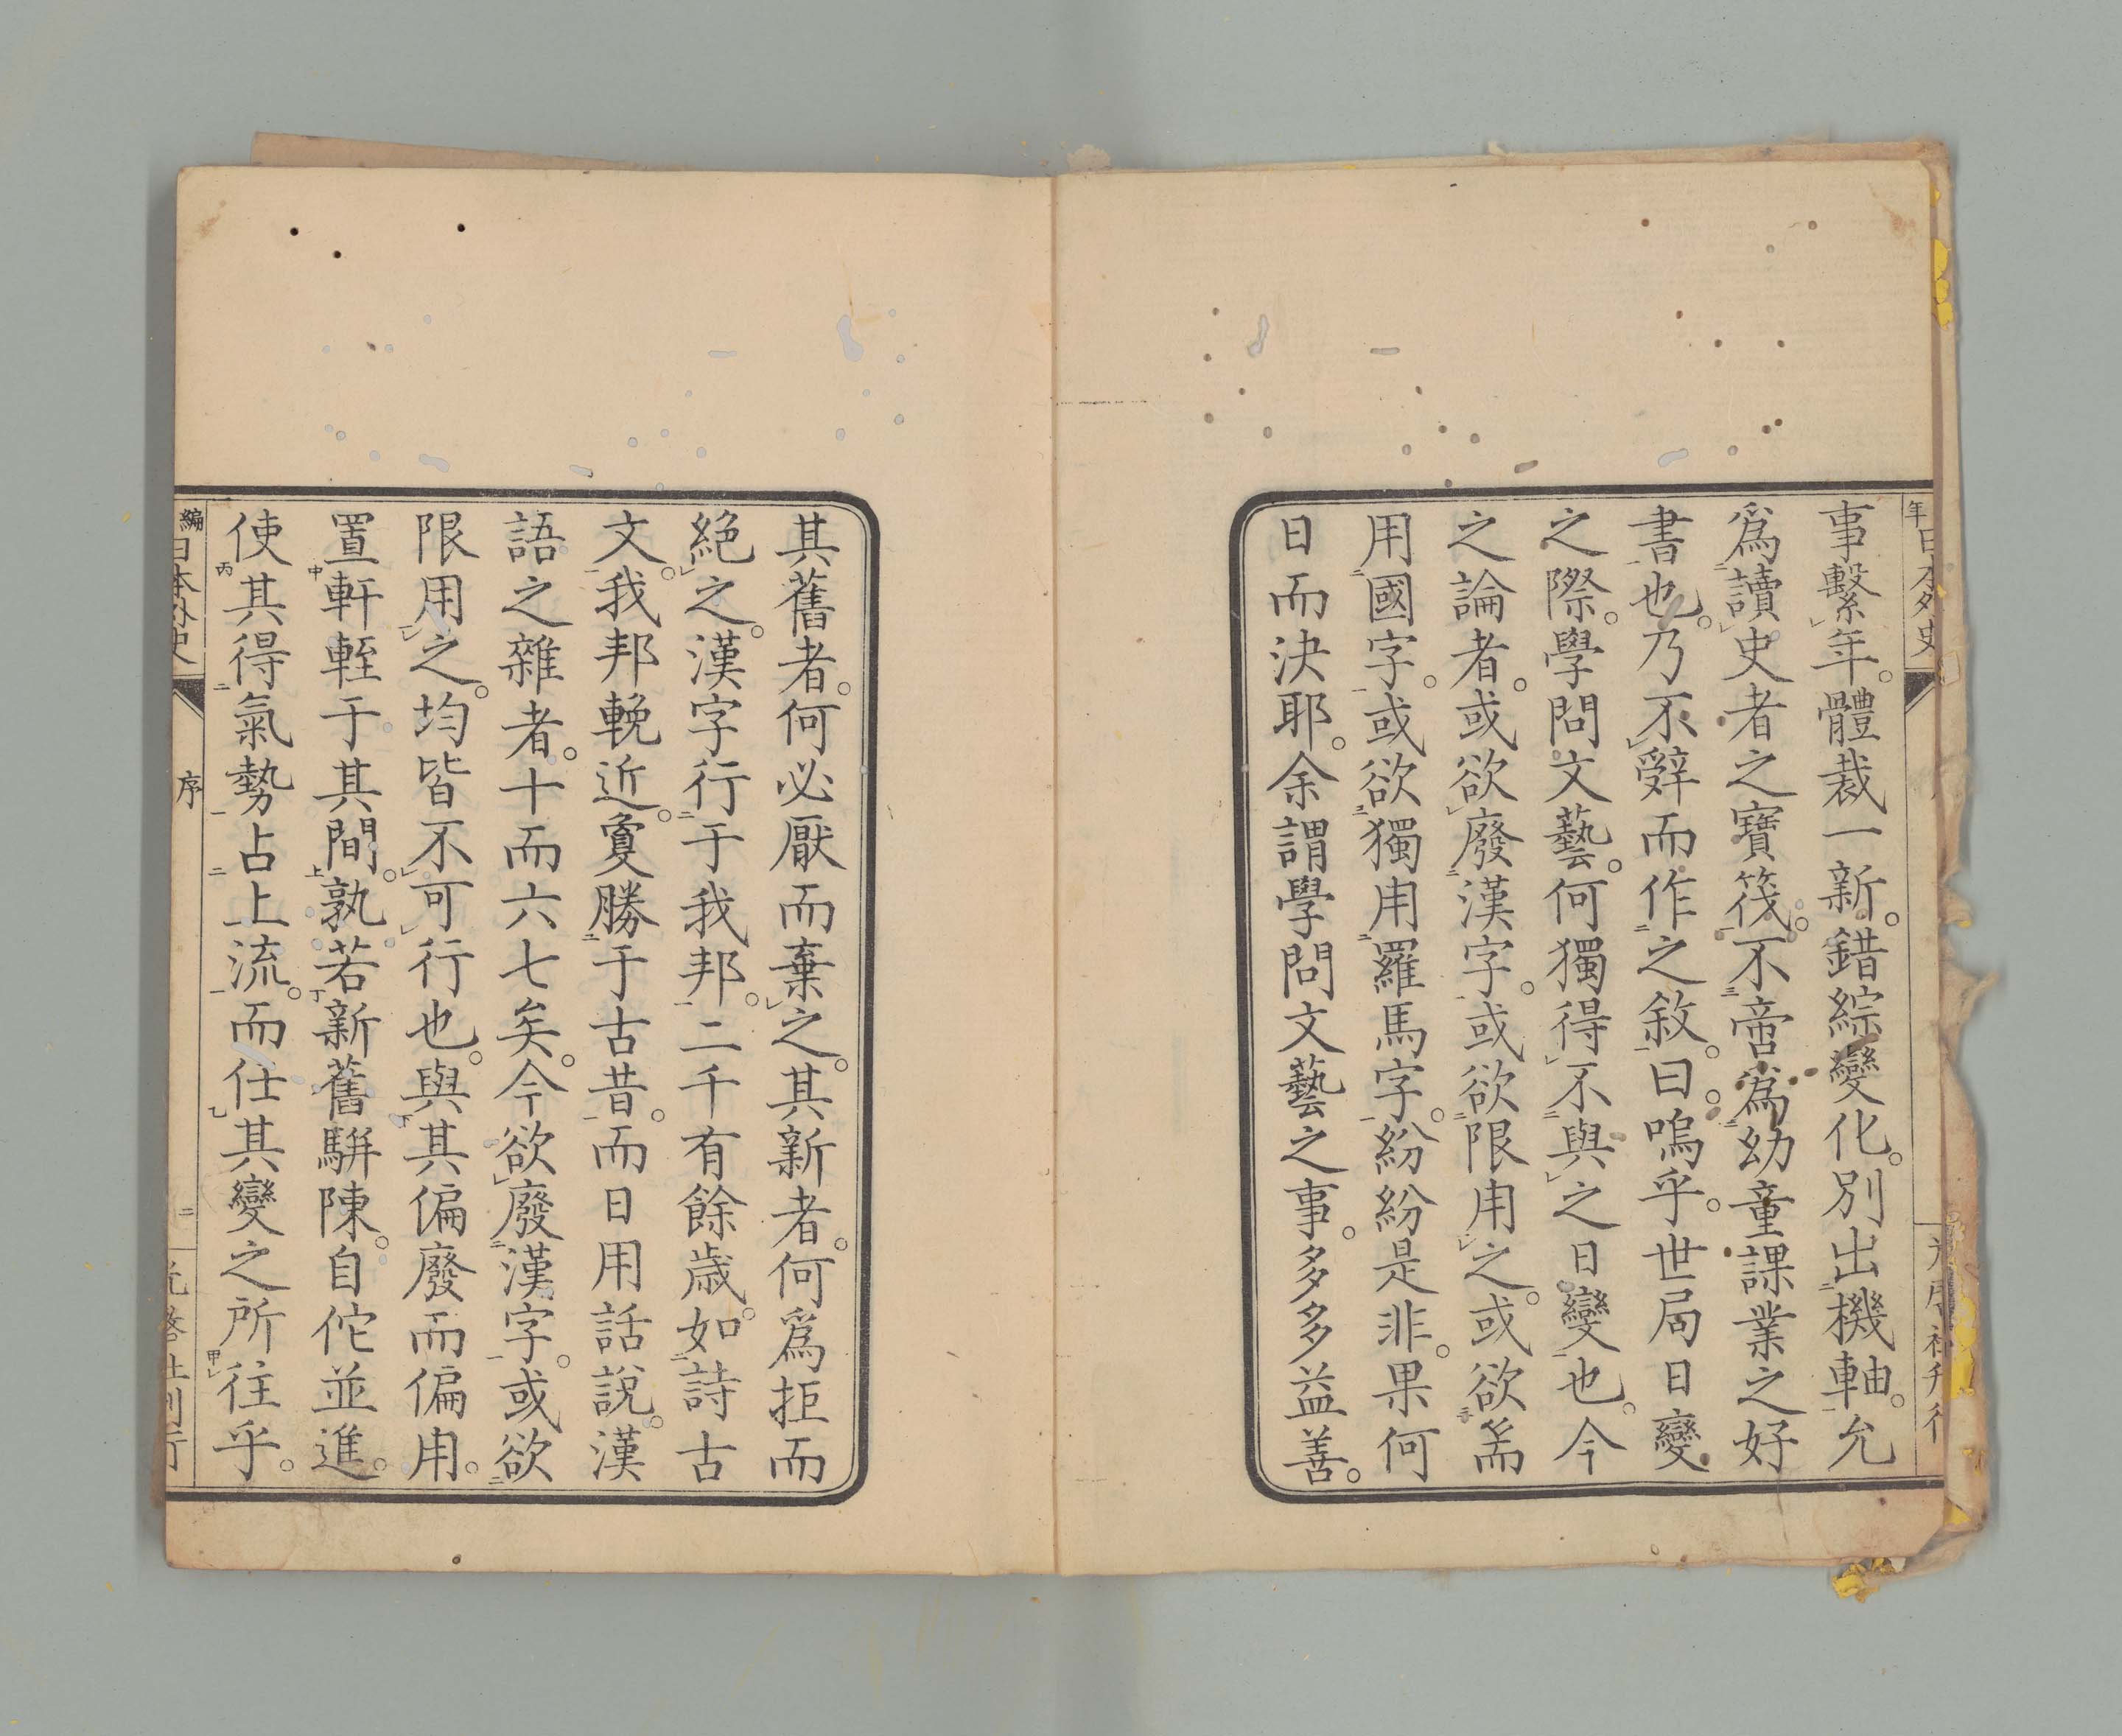 事繫年。體裁一新。錯綜變化。別出機軸。允
爲讀史者之寶筏。不啻爲幼童課業之好
書也。乃不辭而作之敘。曰。嗚乎。世局日變
之際。學問文藝。何獨得不與之日變也。今
之論者。或欲廢漢字。或欲限用之。或欲耑
用國字。或欲獨用羅馬字。紛紛是非。果何
日而決耶。余謂學問文藝之事。多多益善。
其舊者。何必厭而棄之。其新者。何爲拒而
絕之。漢字行于我邦。二千有餘歲。如詩古
文。我邦輓近。敻勝于古昔。而日用話說。漢
語之雜者。十而六七矣。今欲廢漢字。或欲
限用之。均皆不可行也。與其偏廢而偏用。
置軒輊于其間。孰若新舊駢陳。自佗並進。
使其得氣勢占上流。而任其變之所往乎。
編
日本外史
序
二